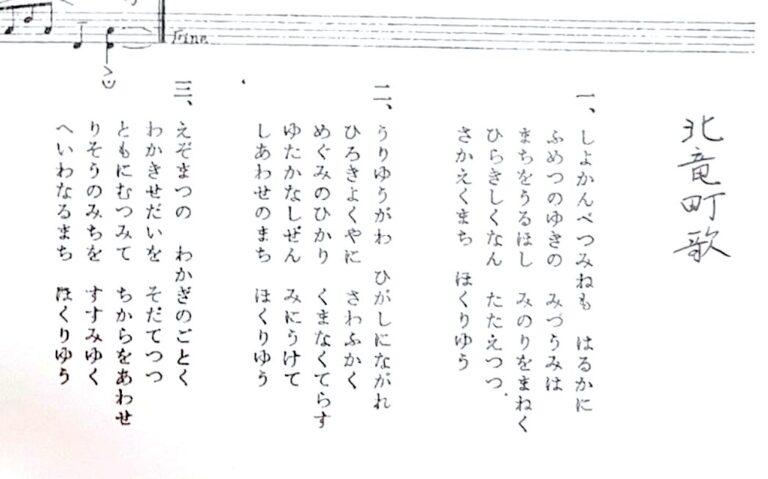 Fine
北竜町歌
一、しよかんべつみねも　はるかに
ふめつのゆきの　みづうみは
まちをうるほし　みのりをまねく
ひらきしくなん　たたえつつ
さかえくまち　ほくりゆう
二、うりゆうがわ　ひがしにながれ
ひろきよくやに　さわふかく
めぐみのひかり　くまなくてらす
ゆたかなしぜん　みにうけて
しあわせのまち　ほくりゆう
三、えぞまつの　わかぎのごとく
わかきせだいを　そだてつつ
ともにむつみて　ちからをあわせ
りそうのみちを　すすみゆく
へいわなるまち　ほくりゆう